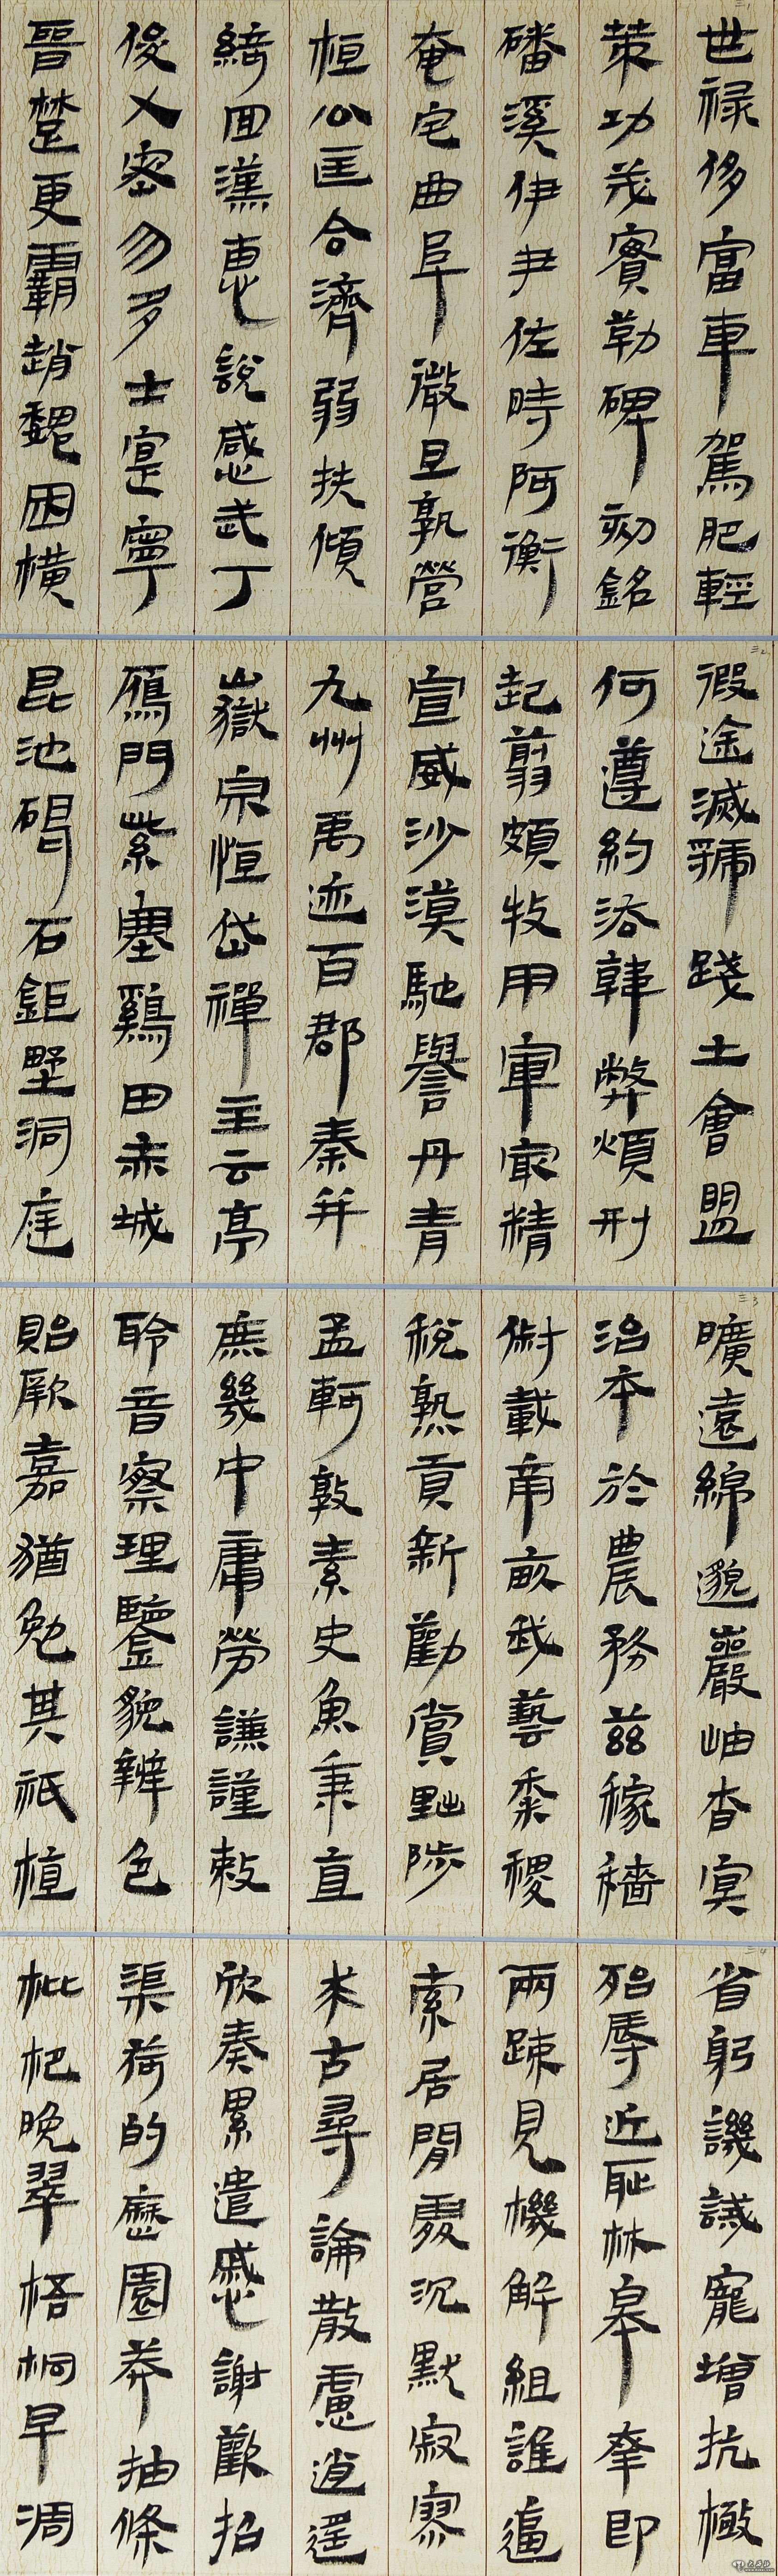 世禄侈富車駕肥輕
策功茂實勒碑刻銘
磻溪伊尹佐時阿衡
奄宅曲阜微旦孰營
桓公匡合濟弱扶傾
綺回漢惠說感武丁
俊乂密勿多士寔寧
晉楚更霸趙魏困横
假途滅虢踐土會盟
何遵約法韓弊煩刑
起翦頗牧用軍最精
宣威沙漠馳譽丹青
九州禹迹百郡秦并
嶽宗恒岱禪主云亭
鴈門紫塞鷄田赤城
昆池碣石鉅野洞庭
曠遠綿邈巖岫杳冥
治本於農務茲稼穡
俶載南畝我藝黍稷
稅熟貢新勸賞黜陟
孟軻敦素史魚秉直
庶幾中庸勞謙謹敕
聆音察理鑒貌辨色
貽厥嘉猷勉其祗植
省躬譏誡寵增抗極
殆辱近恥林皋幸即
兩疏見機解組誰逼
索居閒處沉默寂寥
求古尋論散慮逍遥
欣奏累遣慼謝歡招
渠荷的歷園莽抽條
枇杷晚翠梧桐早凋